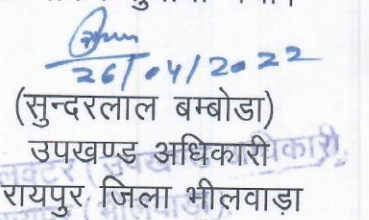 26/04/2022
(सुन्दरलाल बम्बोडा)
उपखण्ड अधिकारी
रायपुर जिला भीलवाड़ा